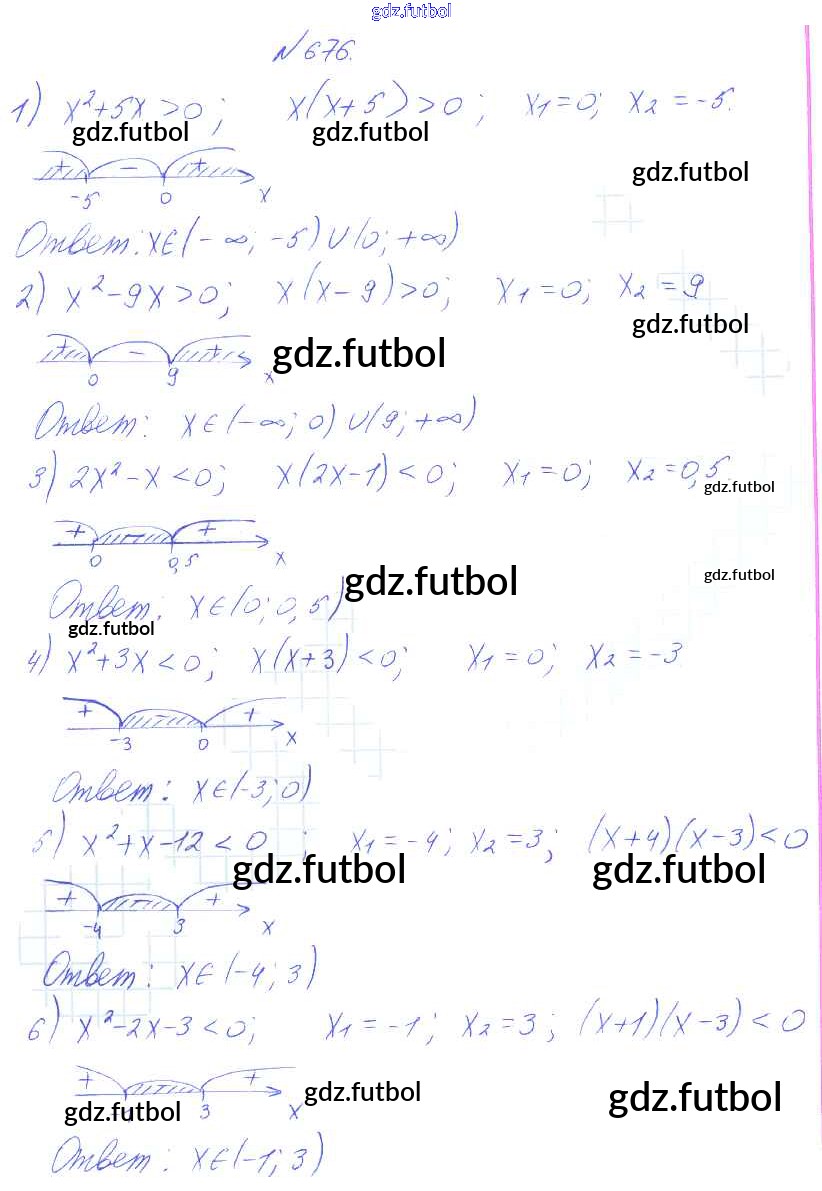 gdz.futbol
№676.
1) x²+5x>0; x(x+5)>0; x₁=0; x₂=-5.
gdz.futbol gdz.futbol
gdz.futbol
+ - +
-5 0 x
Ответ: x∈(-∞; -5)∪(0; +∞)
2) x²-9x>0; x(x-9)>0; x₁=0; x₂=9
gdz.futbol
+ - + gdz.futbol
0 9 x
Ответ: x∈(-∞; 0)∪(9; +∞)
3) 2x²-x<0; x(2x-1)<0; x₁=0; x₂=0,5.
gdz.futbol
+ - +
0 0,5 x
gdz.futbol gdz.futbol
Ответ: x∈(0; 0,5)
gdz.futbol
4) x²+3x<0; x(x+3)<0; x₁=0; x₂=-3.
+ - +
-3 0 x
Ответ: x∈(-3; 0)
5) x²+x-12<0; x₁=-4; x₂=3; (x+4)(x-3)<0
gdz.futbol gdz.futbol
+ - +
-4 3 x
Ответ: x∈(-4; 3)
6) x²-2x-3<0; x₁=-1; x₂=3; (x+1)(x-3)<0
+ - +
gdz.futbol gdz.futbol
gdz.futbol 3 x
Ответ: x∈(-1; 3)